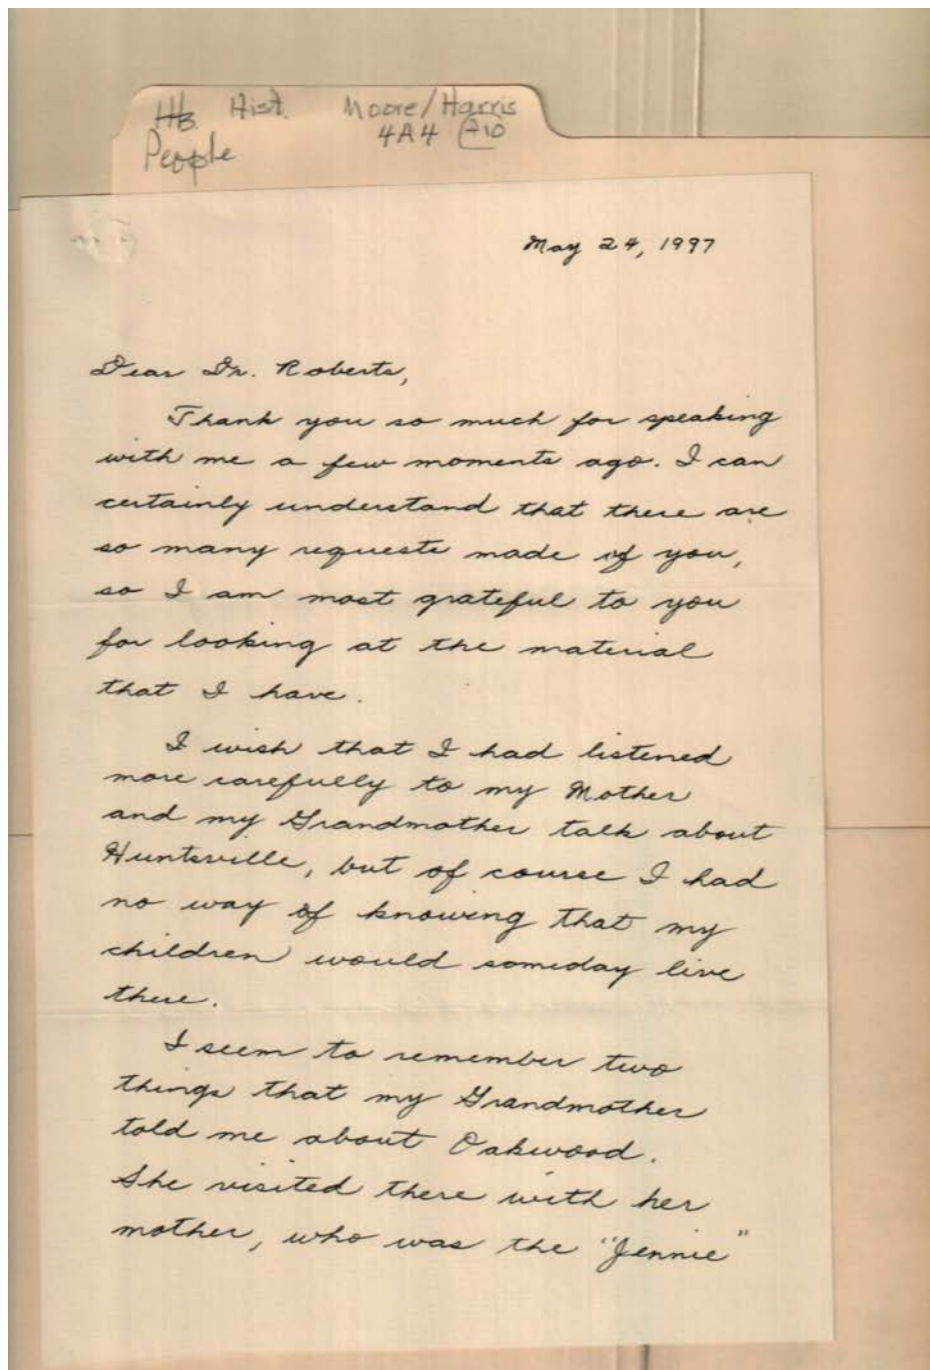 Hist. Moore/Harris
4A4 F10
People
May 24, 1997
Dear Dr. Roberts,
Thank you so much for speaking
with me a few moments ago. I can
certainly understand that there are
so many requests made of you,
so I am most grateful to you
for looking at the material
that I have.
I wish that I had listened
more carefully to my Mother
and my Grandmother talk about
Huntsville, but of course I had
no way of knowing that my
children would someday live
there.
I seem to remember two
things that my Grandmother
told me about Oakwood.
She visited there with her
mother, who was the "Jennie"